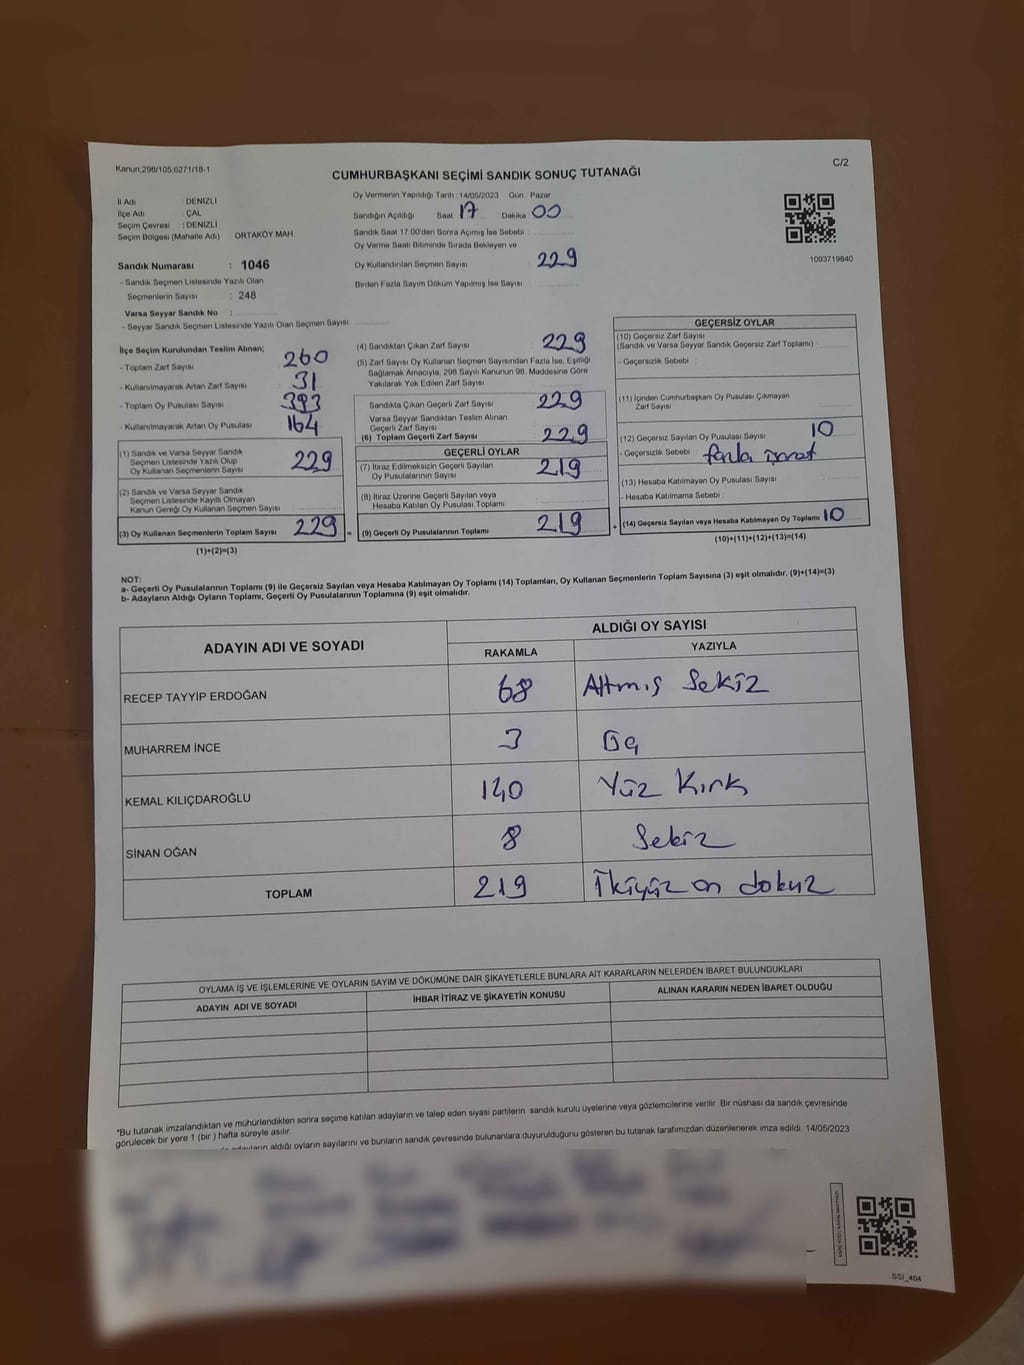 Kanun;298/105;6271/18-1
C/2
CUMHURBAŞKANI SEÇİMİ SANDIK SONUÇ TUTANAĞI
İl Adı : DENİZLİ
İlçe Adı : ÇAL
Seçim Çevresi : DENİZLİ
Seçim Bölgesi (Mahalle Adı) : ORTAKÖY MAH.
Sandık Numarası : 1046
- Sandık Seçmen Listesinde Yazılı Olan
Seçmenlerin Sayısı : 248
Varsa Seyyar Sandık No :
- Seyyar Sandık Seçmen Listesinde Yazılı Olan Seçmen Sayısı
Oy Vermenin Yapıldığı Tarih : 14/05/2023 Gün : Pazar
Sandığın Açıldığı Saat 17 Dakika 00
Sandık Saat 17:00'den Sonra Açımış İse Sebebi
Oy Verme Saati Bitiminde Sırada Bekleyen ve
Oy Kullandırılan Seçmen Sayısı 229
Birden Fazla Sayım Döküm Yapılmış İse Sayısı
1093719840
İlçe Seçim Kurulundan Teslim Alınan;
- Toplam Zarf Sayısı 260
- Kullanılmayarak Artan Zarf Sayısı 31
- Toplam Oy Pusulası Sayısı 393
- Kullanılmayarak Artan Oy Pusulası 164
(1) Sandık ve Varsa Seyyar Sandık
Seçmen Listesinde Yazılı Olup
Oy Kullanan Seçmenlerin Sayısı 229
(2) Sandık ve Varsa Seyyar Sandık
Seçmen Listesinde Kayıtlı Olmayan
Kanun Gereği Oy Kullanan Seçmen Sayısı
(3) Oy Kullanan Seçmenlerin Toplam Sayısı 229 =
(1)+(2)=(3)
(4) Sandıktan Çıkan Zarf Sayısı 229
(5) Zarf Sayısı Oy Kullanan Seçmen Sayısından Fazla İse, Eşitliği
Sağlamak Amacıyla, 298 Sayılı Kanunun 98. Maddesine Göre
Yakılarak Yok Edilen Zarf Sayısı
Sandıkta Çıkan Geçerli Zarf Sayısı 229
Varsa Seyyar Sandıktan Teslim Alınan
Geçerli Zarf Sayısı
(6) Toplam Geçerli Zarf Sayısı 229
GEÇERLİ OYLAR
(7) İtiraz Edilmeksizin Geçerli Sayılan
Oy Pusulalarının Sayısı 219
(8) İtiraz Üzerine Geçerli Sayılan veya
Hesaba Katılan Oy Pusulası Toplamı
(9) Geçerli Oy Pusulalarının Toplamı 219 +
GEÇERSİZ OYLAR
(10) Geçersiz Zarf Sayısı
(Sandık ve Varsa Seyyar Sandık Geçersiz Zarf Toplamı) :
- Geçersizlik Sebebi :
(11) İçinden Cumhurbaşkanı Oy Pusulası Çıkmayan
Zarf Sayısı
(12) Geçersiz Sayılan Oy Pusulası Sayısı 10
- Geçersizlik Sebebi : fazla işaret
(13) Hesaba Katılmayan Oy Pusulası Sayısı
- Hesaba Katılmama Sebebi :
(14) Geçersiz Sayılan veya Hesaba Katılmayan Oy Toplamı 10
(10)+(11)+(12)+(13)=(14)
NOT:
a- Geçerli Oy Pusulalarının Toplamı (9) ile Geçersiz Sayılan veya Hesaba Katılmayan Oy Toplamı (14) Toplamları, Oy Kullanan Seçmenlerin Toplam Sayısına (3) eşit olmalıdır. (9)+(14)=(3)
b- Adayların Aldığı Oyların Toplamı, Geçerli Oy Pusulalarının Toplamına (9) eşit olmalıdır.
ADAYIN ADI VE SOYADI
ALDIĞI OY SAYISI
RAKAMLA YAZIYLA
RECEP TAYYİP ERDOĞAN 68 Altmış Sekiz
MUHARREM İNCE 3 Üç
KEMAL KILIÇDAROĞLU 140 Yüz Kırk
SİNAN OĞAN 8 Sekiz
TOPLAM 219 İkiyüz on dokuz
OYLAMA İŞ VE İŞLEMLERİNE VE OYLARIN SAYIM VE DÖKÜMÜNE DAİR ŞİKAYETLERLE BUNLARA AİT KARARLARIN NELERDEN İBARET BULUNDUKLARI
ADAYIN ADI VE SOYADI İHBAR İTİRAZ VE ŞİKAYETİN KONUSU ALINAN KARARIN NEDEN İBARET OLDUĞU
*Bu tutanak imzalandıktan ve mühürlendikten sonra seçime katılan adayların ve talep eden siyasi partilerin sandık kurulu üyelerine veya gözlemcilerine verilir. Bir nüshası da sandık çevresinde
görülecek bir yere 1 (bir ) hafta süreyle asılır.
aldığı oyların sayılarını ve bunların sandık çevresinde bulunanlara duyurulduğunu gösteren bu tutanak tarafımızdan düzenlenerek imza edildi. 14/05/2023
SSI_404